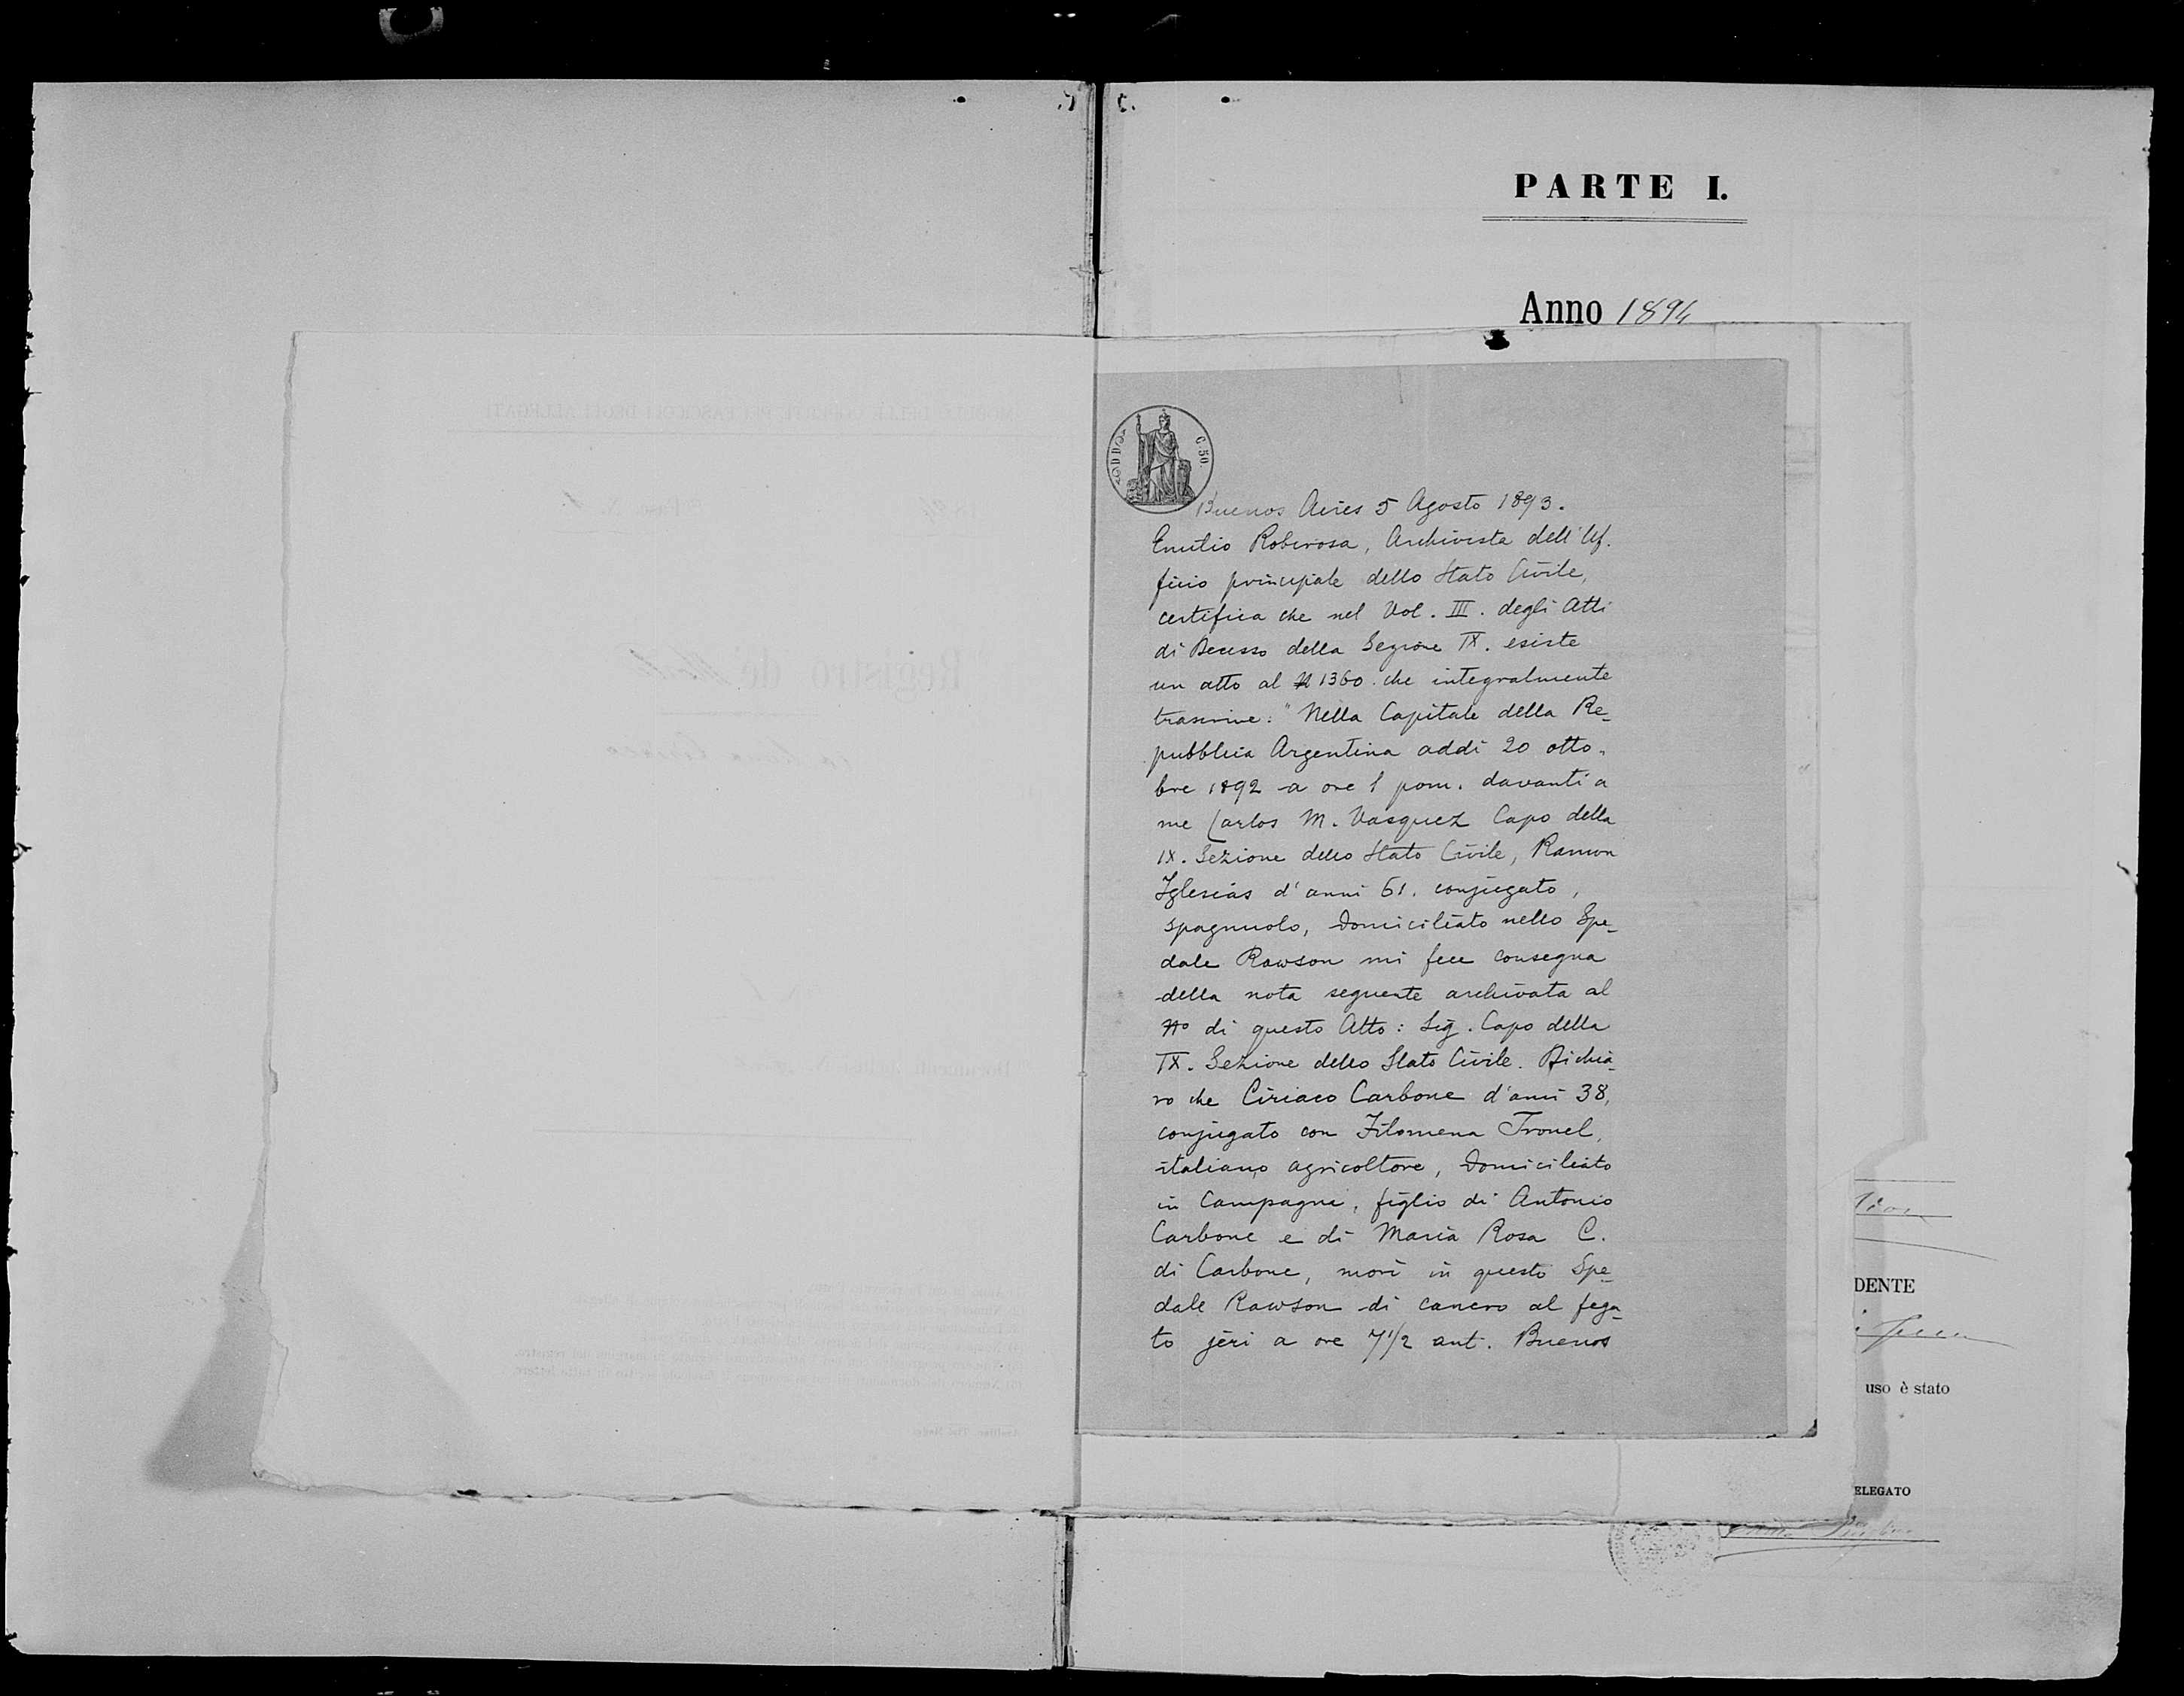 PARTE I.
Anno 1894
C. 50.
Buenos Aires 5 Agosto 1893.
Emilio Roberosa, Archivista dell'Uf.
ficio principale dello Stato Civile,
certifica che nel Vol. III. degli Atti
di Decesso della Sezione IX. esiste
un atto al N 1360. che integralmente
trascrive: "Nella Capitale della Re_
pubblica Argentina addì 20 otto.
bre 1892 a ore 1 pom. davanti a
me Carlos M. Vasquez Capo della
IX. Sezione dello Stato Civile, Ramon
Iglesias d'anni 61. conjugato,
spagnuolo, domiciliato nello Spe_
dale Rawson mi fece consegna
della nota seguente archivata al
No di questo Atto: Sig. Capo della
IX. Sezione dello Stato Civile. Dichia_
ro che Ciriaco Carbone d'anni 38,
conjugato con Filomena Tronel,
italiano, agricoltore, domiciliato
in Campagne, figlio di Antonio
Carbone e di Maria Rosa C.
di Carbone, morì in questo Spe_
dale Rawson di cancro al fega_
to jeri a ore 7 1/2 ant. Buenos
DENTE
uso è stato
ELEGATO